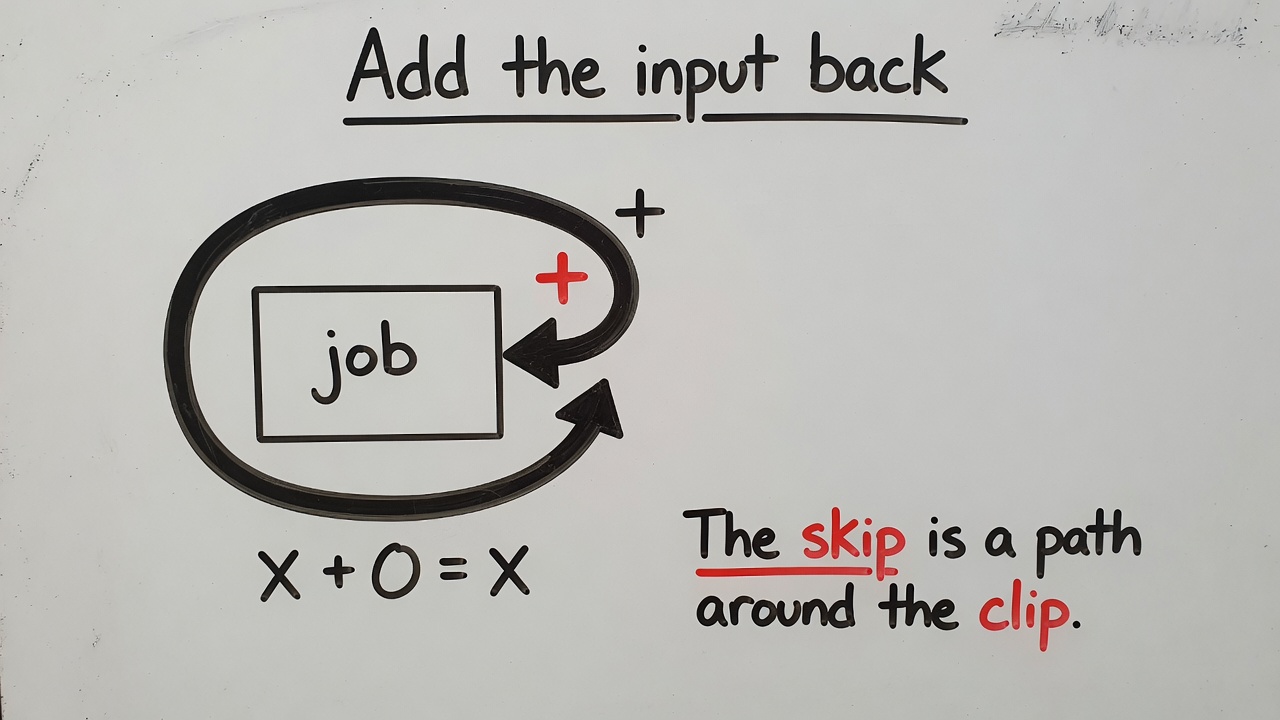 Add the input back
+
+
job
x + 0 = x
The skip is a path
around the clip.